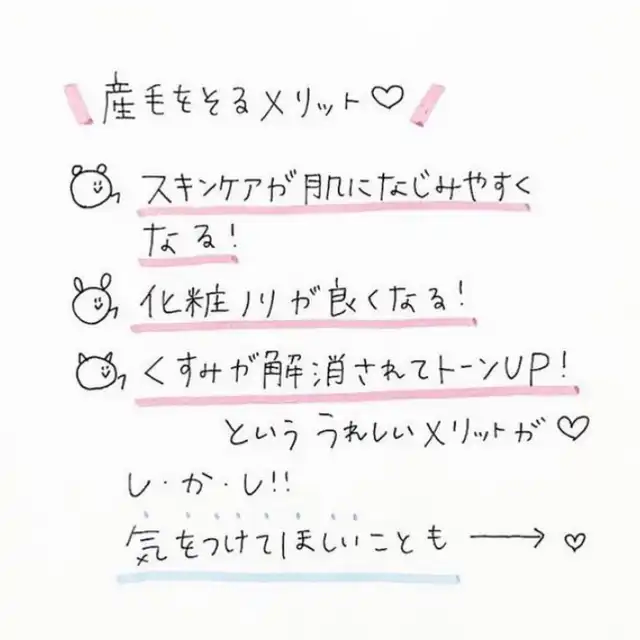 産毛をそるメリット♡
スキンケアが肌になじみやすく
なる!
化粧ノリが良くなる!
くすみが解消されてトーンUP!
という うれしいメリットが♡
し・か・し!!
気をつけてほしいことも → ♡